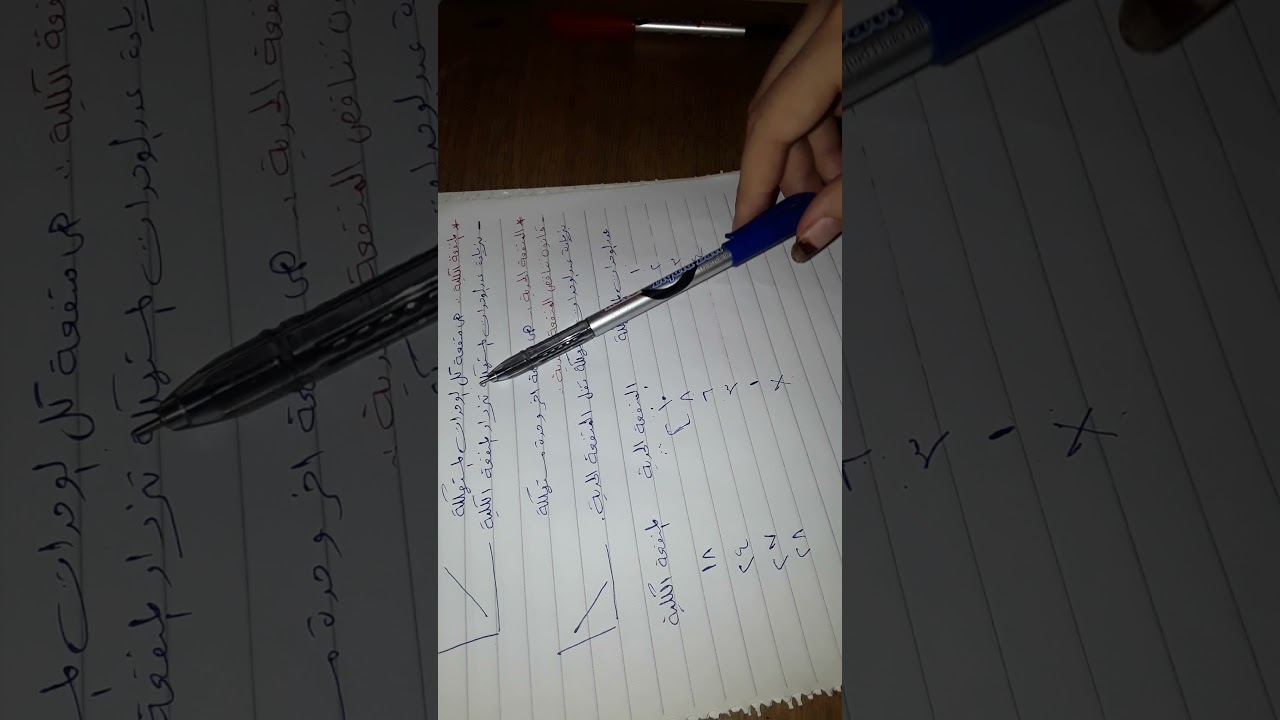 * المنفعة الكلية : هى منفعة كل الوحدات المستهلكة
- بزيادة عدد الوحدات المستهلكة تزداد المنفعة الكلية
* المنفعة الحدية : هى منفعة اخر وحدة مستهلكة
- قانون تناقص المنفعة الحدية :
بزيادة عدد الوحدات المستهلكة تقل المنفعة الحدية .
عدد الوحدات المستهلكة المنفعة الحدية المنفعة الكلية
١ ١٠
٢ ٨ ١٨
٦ ٢٤
٣ ٢٧
١ ٢٨
x